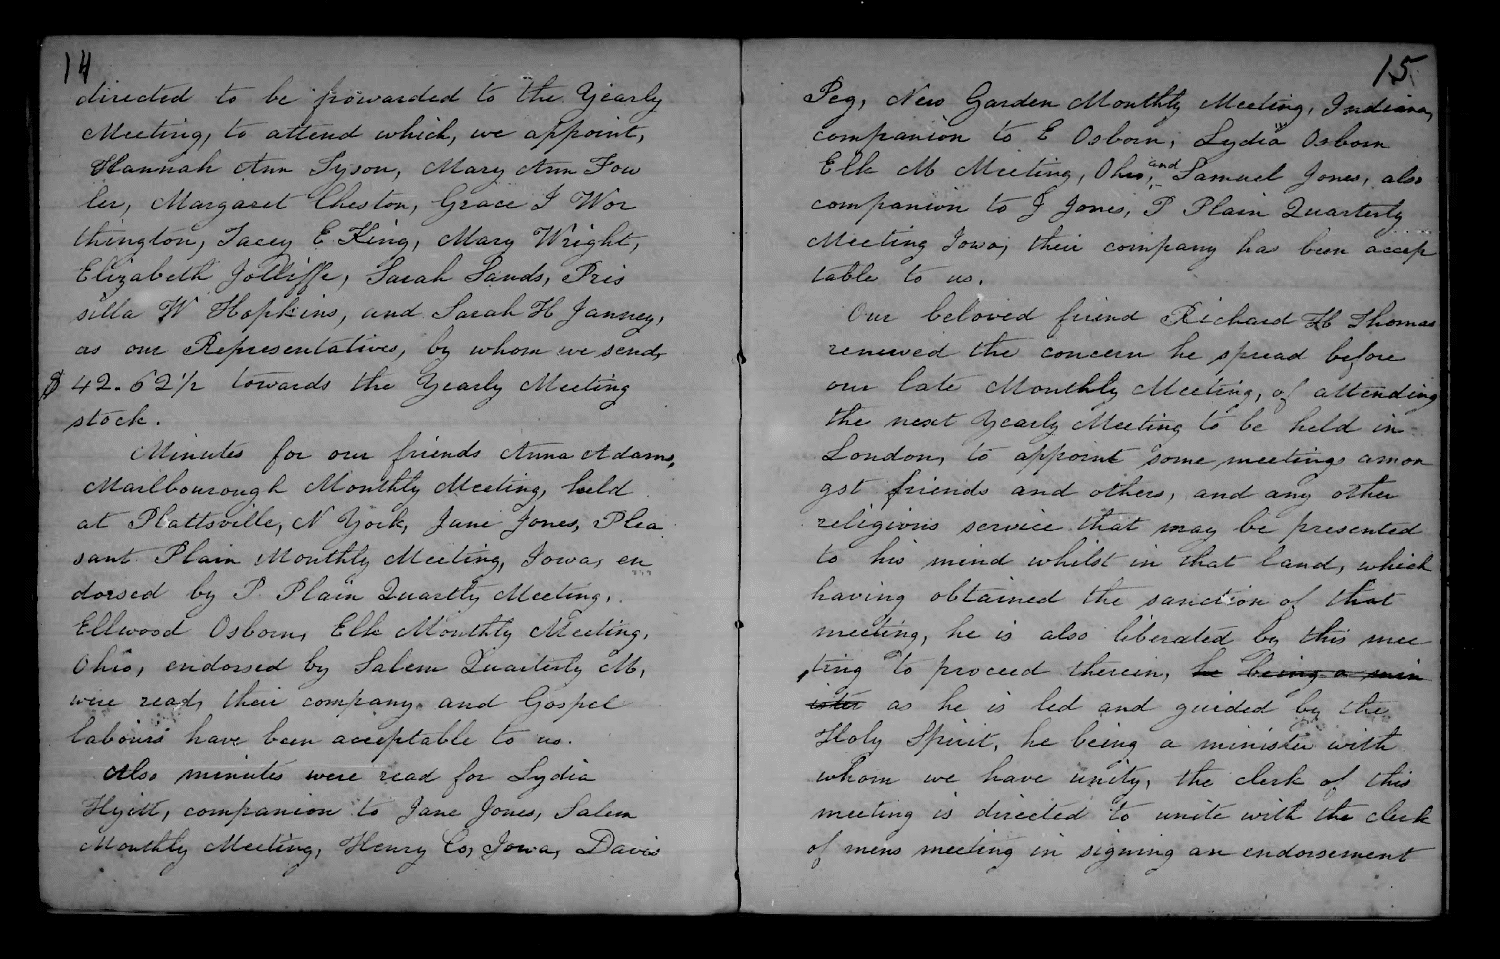 14
directed to be frowarded to the Yearly
Meeting, to attend which, we appoint,
Hannah Ann Tyson, Mary Ann Fow
ler, Margaret Cheston, Grace I Wor
thington, Tacey E. King, Mary Wright,
Elizabeth Jolliffe, Sarah Sands, Pris
silla W Hopkins, and Sarah H Janney,
as our Representatives, by whom we send,
$ 42.62 1/2 towards the Yearly Meeting
stock.
Minutes for our friends Anna Adams,
Marlbourough Monthly Meeting, held
at Plattsville, N York, Jane Jones, Plea
sant Plain Monthly Meeting, Iowa, en
dorsed by P. Plain Quartly Meeting,
Ellwood Osborn, Elk Monthly Meeting,
Ohio, endorsed by Salem Quarterly M,
were read, their company and Gospel
labours have been acceptable to us.
Also minutes were read for Lydia
Hyitt, companion to Jane Jones, Salem
Monthly Meeting, Henry Co, Iowa, Davis
15
Peg, New Garden Monthly Meeting, Indiana,
companion to E Osborn, Lydia Osborn
Elk M Meeting, Ohio, and Samuel Jones, also
companion to J Jones, P Plain Quarterly
Meeting Iowa, their company has been accep
table to us.
Our beloved friend Richard H Thomas
renewed the concern he spread before
our late Monthly Meeting, of attending
the next Yearly Meeting to be held in
London, to appoint some meetings amon
gst friends and others, and any other
religious service that may be presented
to his mind whilst in that land, which
having obtained the sanction of that
meeting, he is also liberated by this mee
ting to proceed therein, he being a min
ister as he is led and guided by the
Holy Spirit, he being a minister with
whom we have unity, the clerk of this
meeting is directed to unite with the clerk
of mens meeting in signing an endorsement